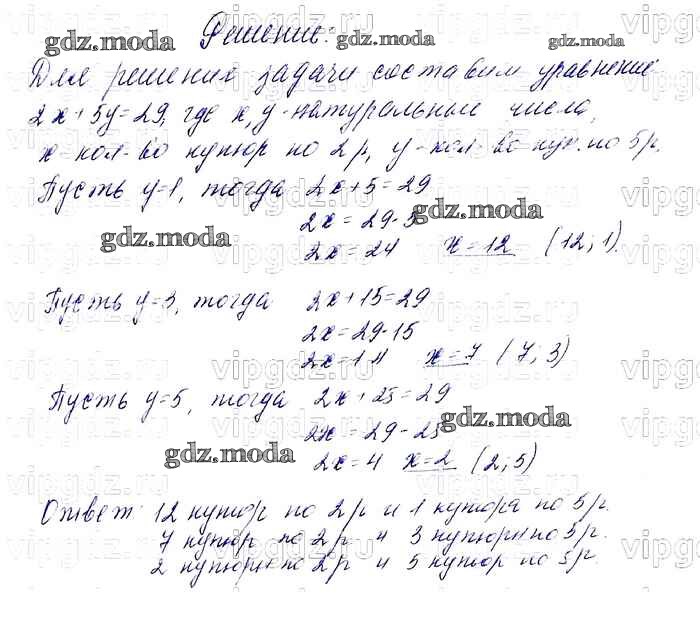 Решение:
Для решения задачи составим уравнение
2x+5y=29, где x, y - натуральные числа,
x - кол-во купюр по 2р, y - кол-во куп. по 5р.
Пусть y=1, тогда 2x+5=29
2x=29-5
2x=24 x=12 (12; 1).
Пусть y=3, тогда 2x+15=29
2x=29-15
2x=14 x=7 (7; 3)
Пусть y=5, тогда 2x+25=29
2x=29-25
2x=4 x=2 (2; 5)
Ответ: 12 купюр по 2р и 1 купюра по 5р.
7 купюр по 2р и 3 купюры по 5р.
2 купюры по 2р и 5 купюр по 5р.
gdz.moda
gdz.moda
gdz.moda
gdz.moda
gdz.moda
gdz.moda
gdz.moda
vipgdz.ru